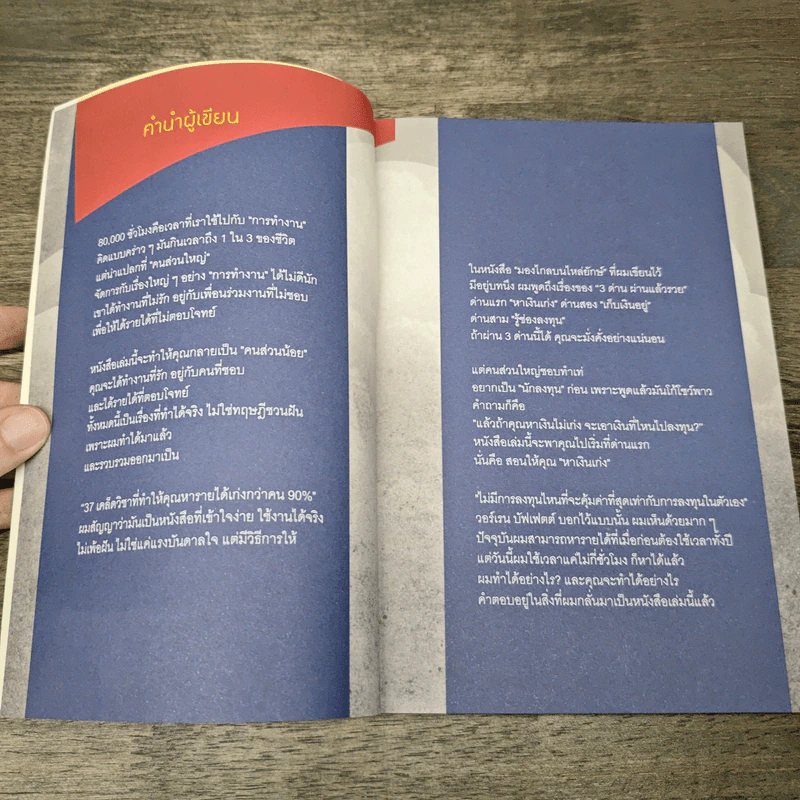 คำนำผู้เขียน
80,000 ชั่วโมงคือเวลาที่เราใช้ไปกับ "การทำงาน"
คิดแบบคร่าว ๆ มันกินเวลาถึง 1 ใน 3 ของชีวิต
แต่น่าแปลกที่ "คนส่วนใหญ่"
จัดการกับเรื่องใหญ่ ๆ อย่าง "การทำงาน" ได้ไม่ดีนัก
เขาได้ทำงานที่ไม่รัก อยู่กับเพื่อนร่วมงานที่ไม่ชอบ
เพื่อให้ได้รายได้ที่ไม่ตอบโจทย์
หนังสือเล่มนี้จะทำให้คุณกลายเป็น "คนส่วนน้อย"
คุณจะได้ทำงานที่รัก อยู่กับคนที่ชอบ
และได้รายได้ที่ตอบโจทย์
ทั้งหมดนี้เป็นเรื่องที่ทำได้จริง ไม่ใช่ทฤษฎีชวนฝัน
เพราะผมทำได้มาแล้ว
และรวบรวมออกมาเป็น
"37 เคล็ดวิชาที่ทำให้คุณหารายได้เก่งกว่าคน 90%"
ผมสัญญาว่ามันเป็นหนังสือที่เข้าใจง่าย ใช้งานได้จริง
ไม่เพ้อฝัน ไม่ใช่แค่แรงบันดาลใจ แต่มีวิธีการให้
ในหนังสือ "มองไกลบนไหล่ยักษ์" ที่ผมเขียนไว้
มีอยู่บทนึง ผมพูดถึงเรื่องของ "3 ด่าน ผ่านแล้วรวย"
ด่านแรก "หาเงินเก่ง" ด่านสอง "เก็บเงินอยู่"
ด่านสาม "รู้ช่องลงทุน"
ถ้าผ่าน 3 ด่านนี้ได้ คุณจะมั่งคั่งอย่างแน่นอน
แต่คนส่วนใหญ่ชอบทำเท่
อยากเป็น "นักลงทุน" ก่อน เพราะพูดแล้วมันโก้โชว์พาว
คำถามก็คือ
"แล้วถ้าคุณหาเงินไม่เก่ง จะเอาเงินที่ไหนไปลงทุน?"
หนังสือเล่มนี้จะพาคุณไปเริ่มที่ด่านแรก
นั่นคือ สอนให้คุณ "หาเงินเก่ง"
"ไม่มีการลงทุนไหนที่จะคุ้มค่าที่สุดเท่ากับการลงทุนในตัวเอง"
วอร์เรน บัฟเฟตต์ บอกไว้แบบนั้น ผมเห็นด้วยมาก ๆ
ปัจจุบันผมสามารถหารายได้ที่เมื่อก่อนต้องใช้เวลาทั้งปี
แต่วันนี้ผมใช้เวลาแค่ไม่กี่ชั่วโมง ก็หาได้แล้ว
ผมทำได้อย่างไร? และคุณจะทำได้อย่างไร
คำตอบอยู่ในสิ่งที่ผมกลั่นมาเป็นหนังสือเล่มนี้แล้ว